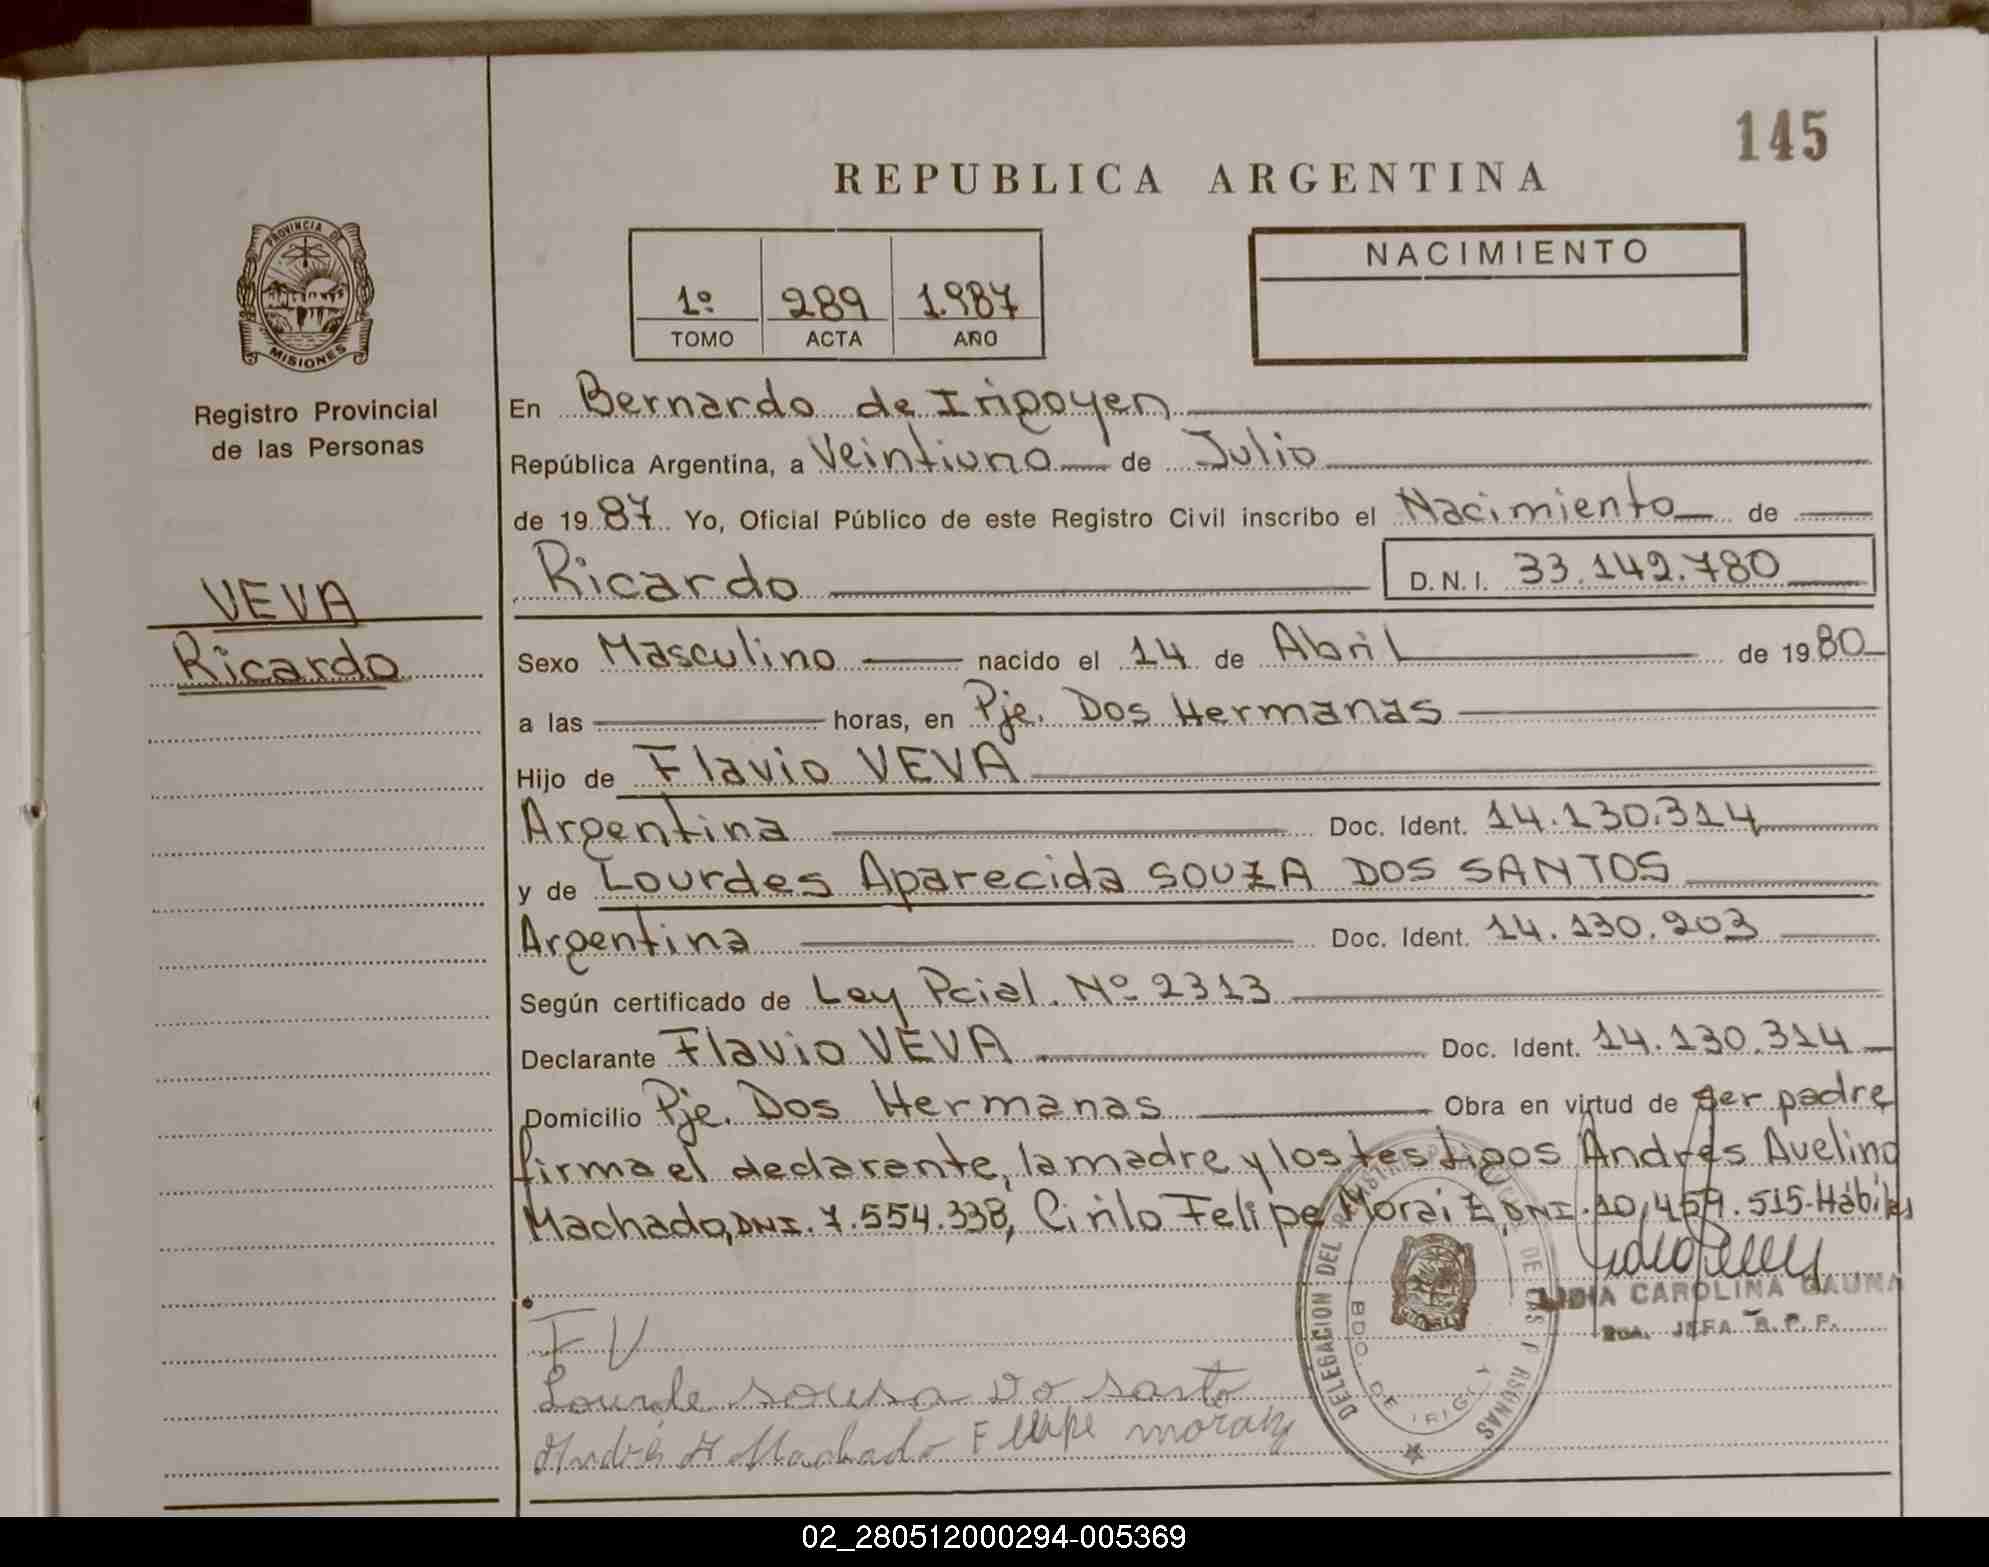 145
REPUBLICA ARGENTINA
PROVINCIA DE
MISIONES
Registro Provincial
de las Personas
VEVA
Ricardo
1º 289 1.987
TOMO ACTA AÑO
NACIMIENTO
En Bernardo de Irigoyen
República Argentina, a Veintiuno de Julio
de 19 87 Yo, Oficial Público de este Registro Civil inscribo el Nacimiento de
Ricardo D.N.I. 33.142.780
Sexo Masculino nacido el 14 de Abril de 19 80
a las horas, en Pje. Dos Hermanas
Hijo de Flavio VEVA
Argentina Doc. Ident. 14.130.314
y de Lourdes Aparecida SOUZA DOS SANTOS
Argentina Doc. Ident. 14.130.203
Según certificado de Ley Pcial. Nº 2313
Declarante Flavio VEVA Doc. Ident. 14.130.314
Domicilio Pje. Dos Hermanas Obra en virtud de ser padre
firma el declarante, la madre y los testigos Andrés Avelino
Machado, DNI. 7.554.338, Cirilo Felipe Moraiz, DNI. 10.459.515-Hábiles
LIDIA CAROLINA GAUNA
JEFA R.P.P.
DELEGACION DEL REGISTRO DE LAS PERSONAS
BDO. DE IRIGOY
F V
Lourde sousa Do santo
Andrés A Machado Felipe moraiz
02_280512000294-005369